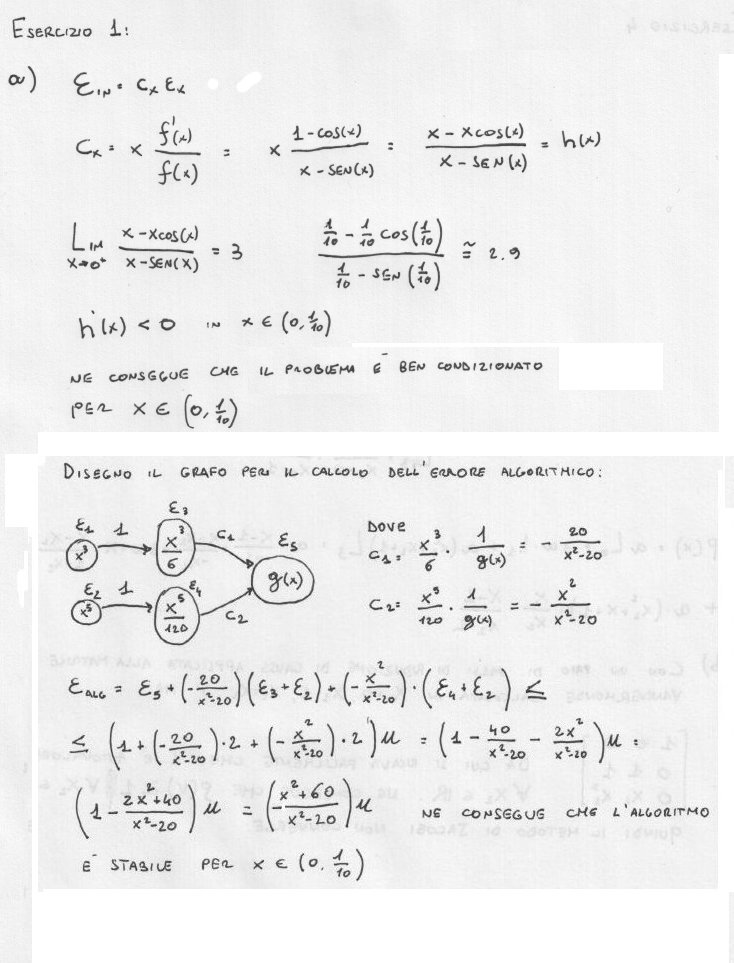 ESERCIZIO 1:
a) ε_IN = C_x ε_x
C_x = x f'(x)/f(x) = x (1-cos(x))/(x-SEN(x)) = (x-xcos(x))/(x-SEN(x)) = h(x)
LIM x→0⁺ (x-xcos(x))/(x-SEN(x)) = 3 (1/10 - 1/10 cos(1/10))/(1/10 - SEN(1/10)) ≅ 2.9
h'(x) < 0 IN x ∈ (0, 1/10)
NE CONSEGUE CHE IL PROBLEMA È BEN CONDIZIONATO
PER x ∈ (0, 1/10)
DISEGNO IL GRAFO PER IL CALCOLO DELL'ERRORE ALGORITMICO:
ε₁ x³ 1 ε₃ x³/6 C₁ ε₅ g(x)
ε₂ x⁵ 1 ε₄ x⁵/120 C₂
DOVE
C₁ = x³/6 · 1/g(x) = - 20/(x²-20)
C₂ = x⁵/120 · 1/g(x) = - x²/(x²-20)
ε_ALG = ε₅ + (-20/(x²-20)) (ε₃+ε₂) + (-x²/(x²-20)) · (ε₄+ε₂) ≤
≤ (1 + (-20/(x²-20)) · 2 + (-x²/(x²-20)) · 2) u = (1 - 40/(x²-20) - 2x²/(x²-20)) u =
(1 - (2x²+40)/(x²-20)) u = (-(x²+60)/(x²-20)) u NE CONSEGUE CHE L'ALGORITMO
È STABILE PER x ∈ (0, 1/10)